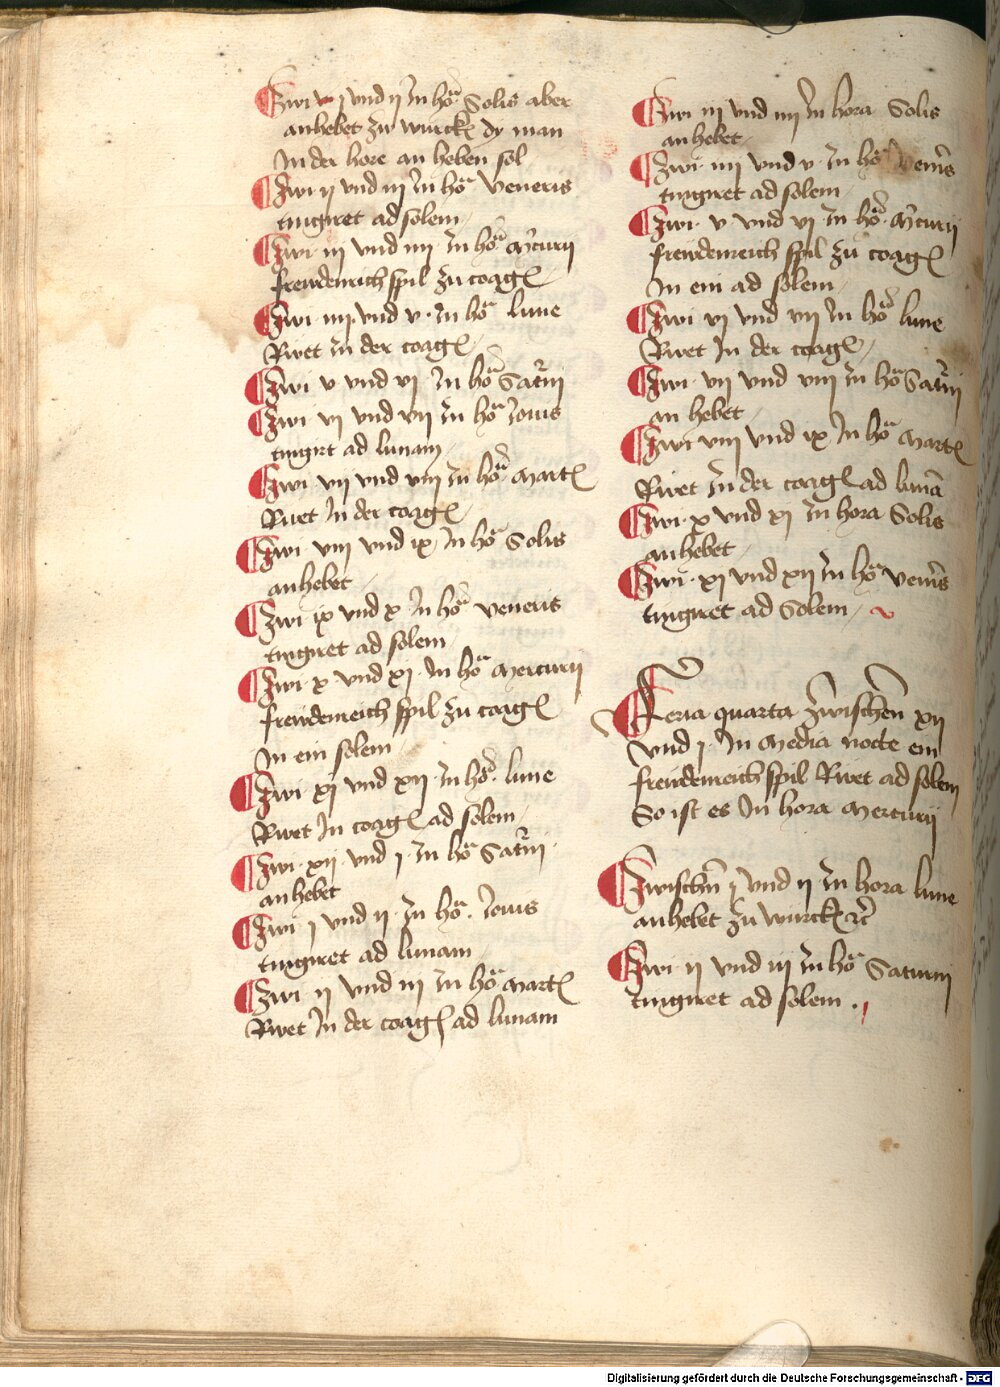 Zwi j vnd ij In hor Solis aber
anhebet zu wurck dy man
In der hore an heben sol
Zwi ij vnd iij In hor Veneris
tingiret ad solem
Zwi iij vnd iiij In hor Mercurii
freudenrich spil zu coagl
Zwi iiij vnd v In hor lune
Rwet In der coagl
Zwi v vnd vj In hor Saturni
Zwi vj vnd vij In hor Iouis
tingirt ad lunam
Zwi vij vnd viij In hor Mart
Ruet In der coagl
Zwi viij vnd ix In hor Solis
anhebet
Zwi ix vnd x In hor veneris
tingiret ad solem
Zwi x vnd xj In hor Mercurij
freudenreich spil zu coagl
In ein solem
Zwi xj vnd xij In hor lune
Rwet In coagl ad solem
Zwi xij vnd j In hor Saturni
anhebet
Zwi j vnd ij In hor Iouis
tingiret ad lunam
Zwi ij vnd iij In hor Mart
Rwet In der coagl ad lunam
Zwi iij vnd iiij In hora Solis
anhebet
Zwi iiij vnd v In hor veneris
tingiret ad solem
Zwi v vnd vj In hor Mercurij
freudenreich spil zu coagl
In ein ad solem
Zwi vj vnd vij In hor lune
Rwet In der coagl
Zwi vij vnd viij In hor Saturni
an hebet
Zwi viij vnd ix In hor Mart
Rwet In der coagl ad lunam
Zwi x vnd xj In hora Solis
anhebet
Zwi xj vnd xij In hor veneris
tingiret ad Solem
Feria quarta Zwischen xij
vnd j In Media nocte ein
freudenreich spil Rwet ad solem
So ist es In hora Mercurij
Zwischn j vnd ij In hora lune
anhebet zu wurck etc
Zwi ij vnd iij In hor Saturnij
tingiret ad solem
Digitalisierung gefördert durch die Deutsche Forschungsgemeinschaft - DFG